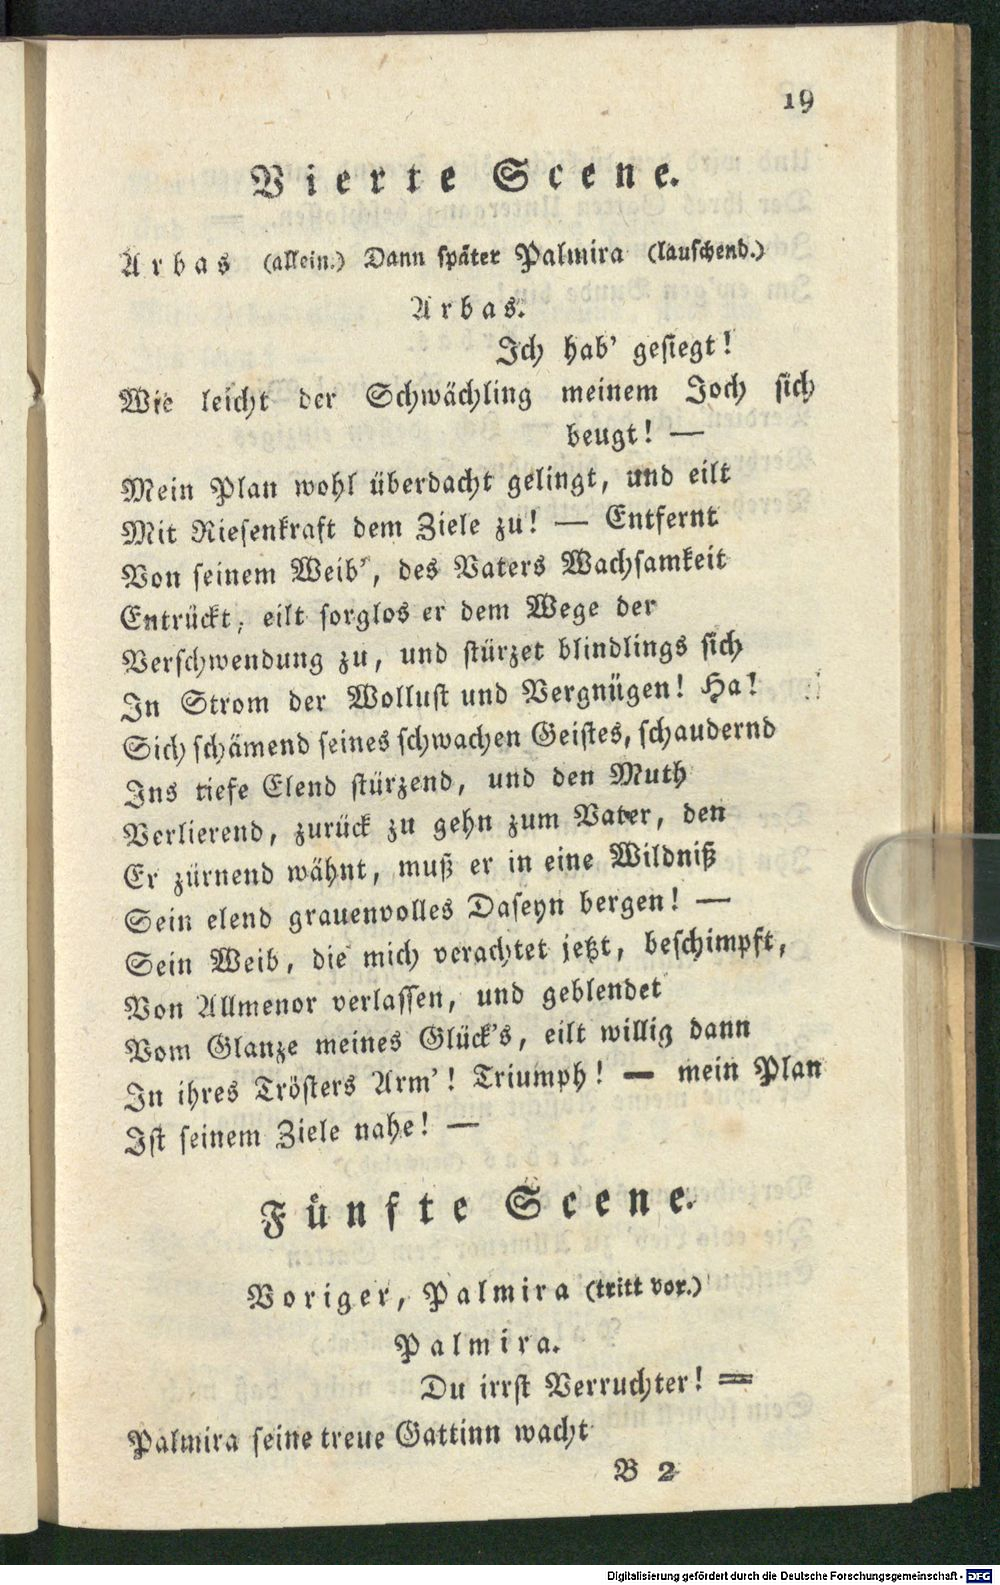 19
Vierte Scene.
Arbas (allein.) Dann später Palmira (lauschend.)
Arbas.
Ich hab' gesiegt!
Wie leicht der Schwächling meinem Joch sich
beugt! —
Mein Plan wohl überdacht gelingt, und eilt
Mit Riesenkraft dem Ziele zu! — Entfernt
Von seinem Weib', des Vaters Wachsamkeit
Entrückt, eilt sorglos er dem Wege der
Verschwendung zu, und stürzet blindlings sich
In Strom der Wollust und Vergnügen! Ha!
Sich schämend seines schwachen Geistes, schaudernd
Ins tiefe Elend stürzend, und den Muth
Verlierend, zurück zu gehn zum Vater, den
Er zürnend wähnt, muß er in eine Wildniß
Sein elend grauenvolles Daseyn bergen! —
Sein Weib, die mich verachtet jetzt, beschimpft,
Von Allmenor verlassen, und geblendet
Vom Glanze meines Glück's, eilt willig dann
In ihres Trösters Arm'! Triumph! — mein Plan
Ist seinem Ziele nahe! —
Fünfte Scene.
Voriger, Palmira (tritt vor.)
Palmira.
Du irrst Verruchter! =
Palmira seine treue Gattinn wacht
B 2
Digitalisierung gefördert durch die Deutsche Forschungsgemeinschaft - DFG